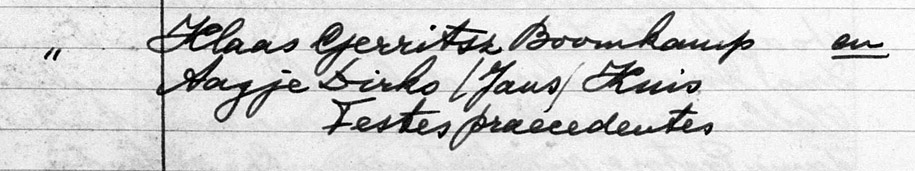 " Klaas Gerritsz Boomkamp en
Aagje Dirks (Jans) Kuis
Testes praecedentes